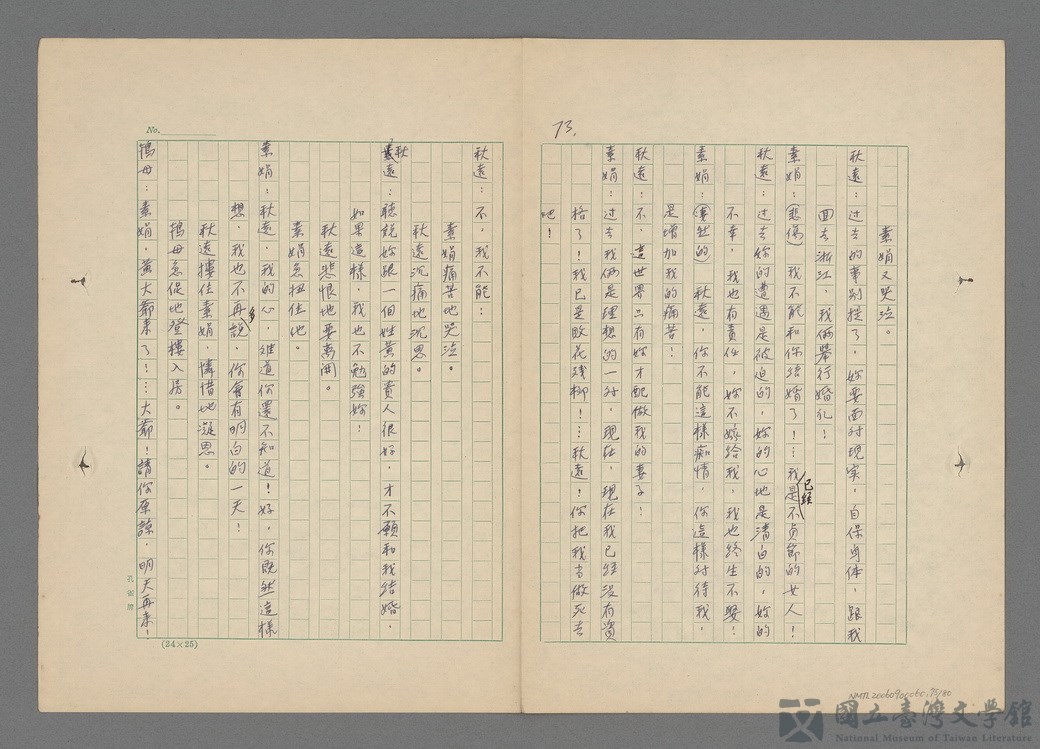 73.
素娟又哭泣。
秋遠：过去的事别提了，妳要面对現实，自保身体，跟我
回去浙江，我俩舉行婚礼！
素娟：(悲傷) 我不能和你结婚了！…我已經是不貞節的女人！
秋遠：过去妳的遭遇是被迫的，妳的心地是清白的，妳的
不幸，我也有責任，妳不嫁给我，我也终生不娶！
素娟：(凄然的) 秋遠，你不能這樣痴情，你這樣对待我，
是增加我的痛苦！
秋遠：不，這世界只有妳才配做我的妻子！
素娟：过去我俩是理想的一对，現在，現在我已经沒有資
格了！我已是败花残柳！…秋遠！你把我当做死去
吧！
秋遠：不，我不能！
素娟痛苦地哭泣。
秋遠沉痛地沉思。
秋遠：聽説妳跟一個姓黄的貴人很好，才不願和我结婚，
如果這樣，我也不勉強妳！
秋遠悲恨地要离開。
素娟急扭住他。
素娟：秋遠，我的心，难道你還不知道！好，你既然這樣
想，我也不再多説，你會有明白的一天！
秋遠摟住素娟，憐惜地凝思。
鴇母急促地登樓入房。
鴇母：素娟，黄大爺来了！…大爺！請你原諒，明天再来！
No.
(24×25)
孔雀牌
NMTL20060900060,75/80
國立臺灣文學館
National Museum of Taiwan Literature